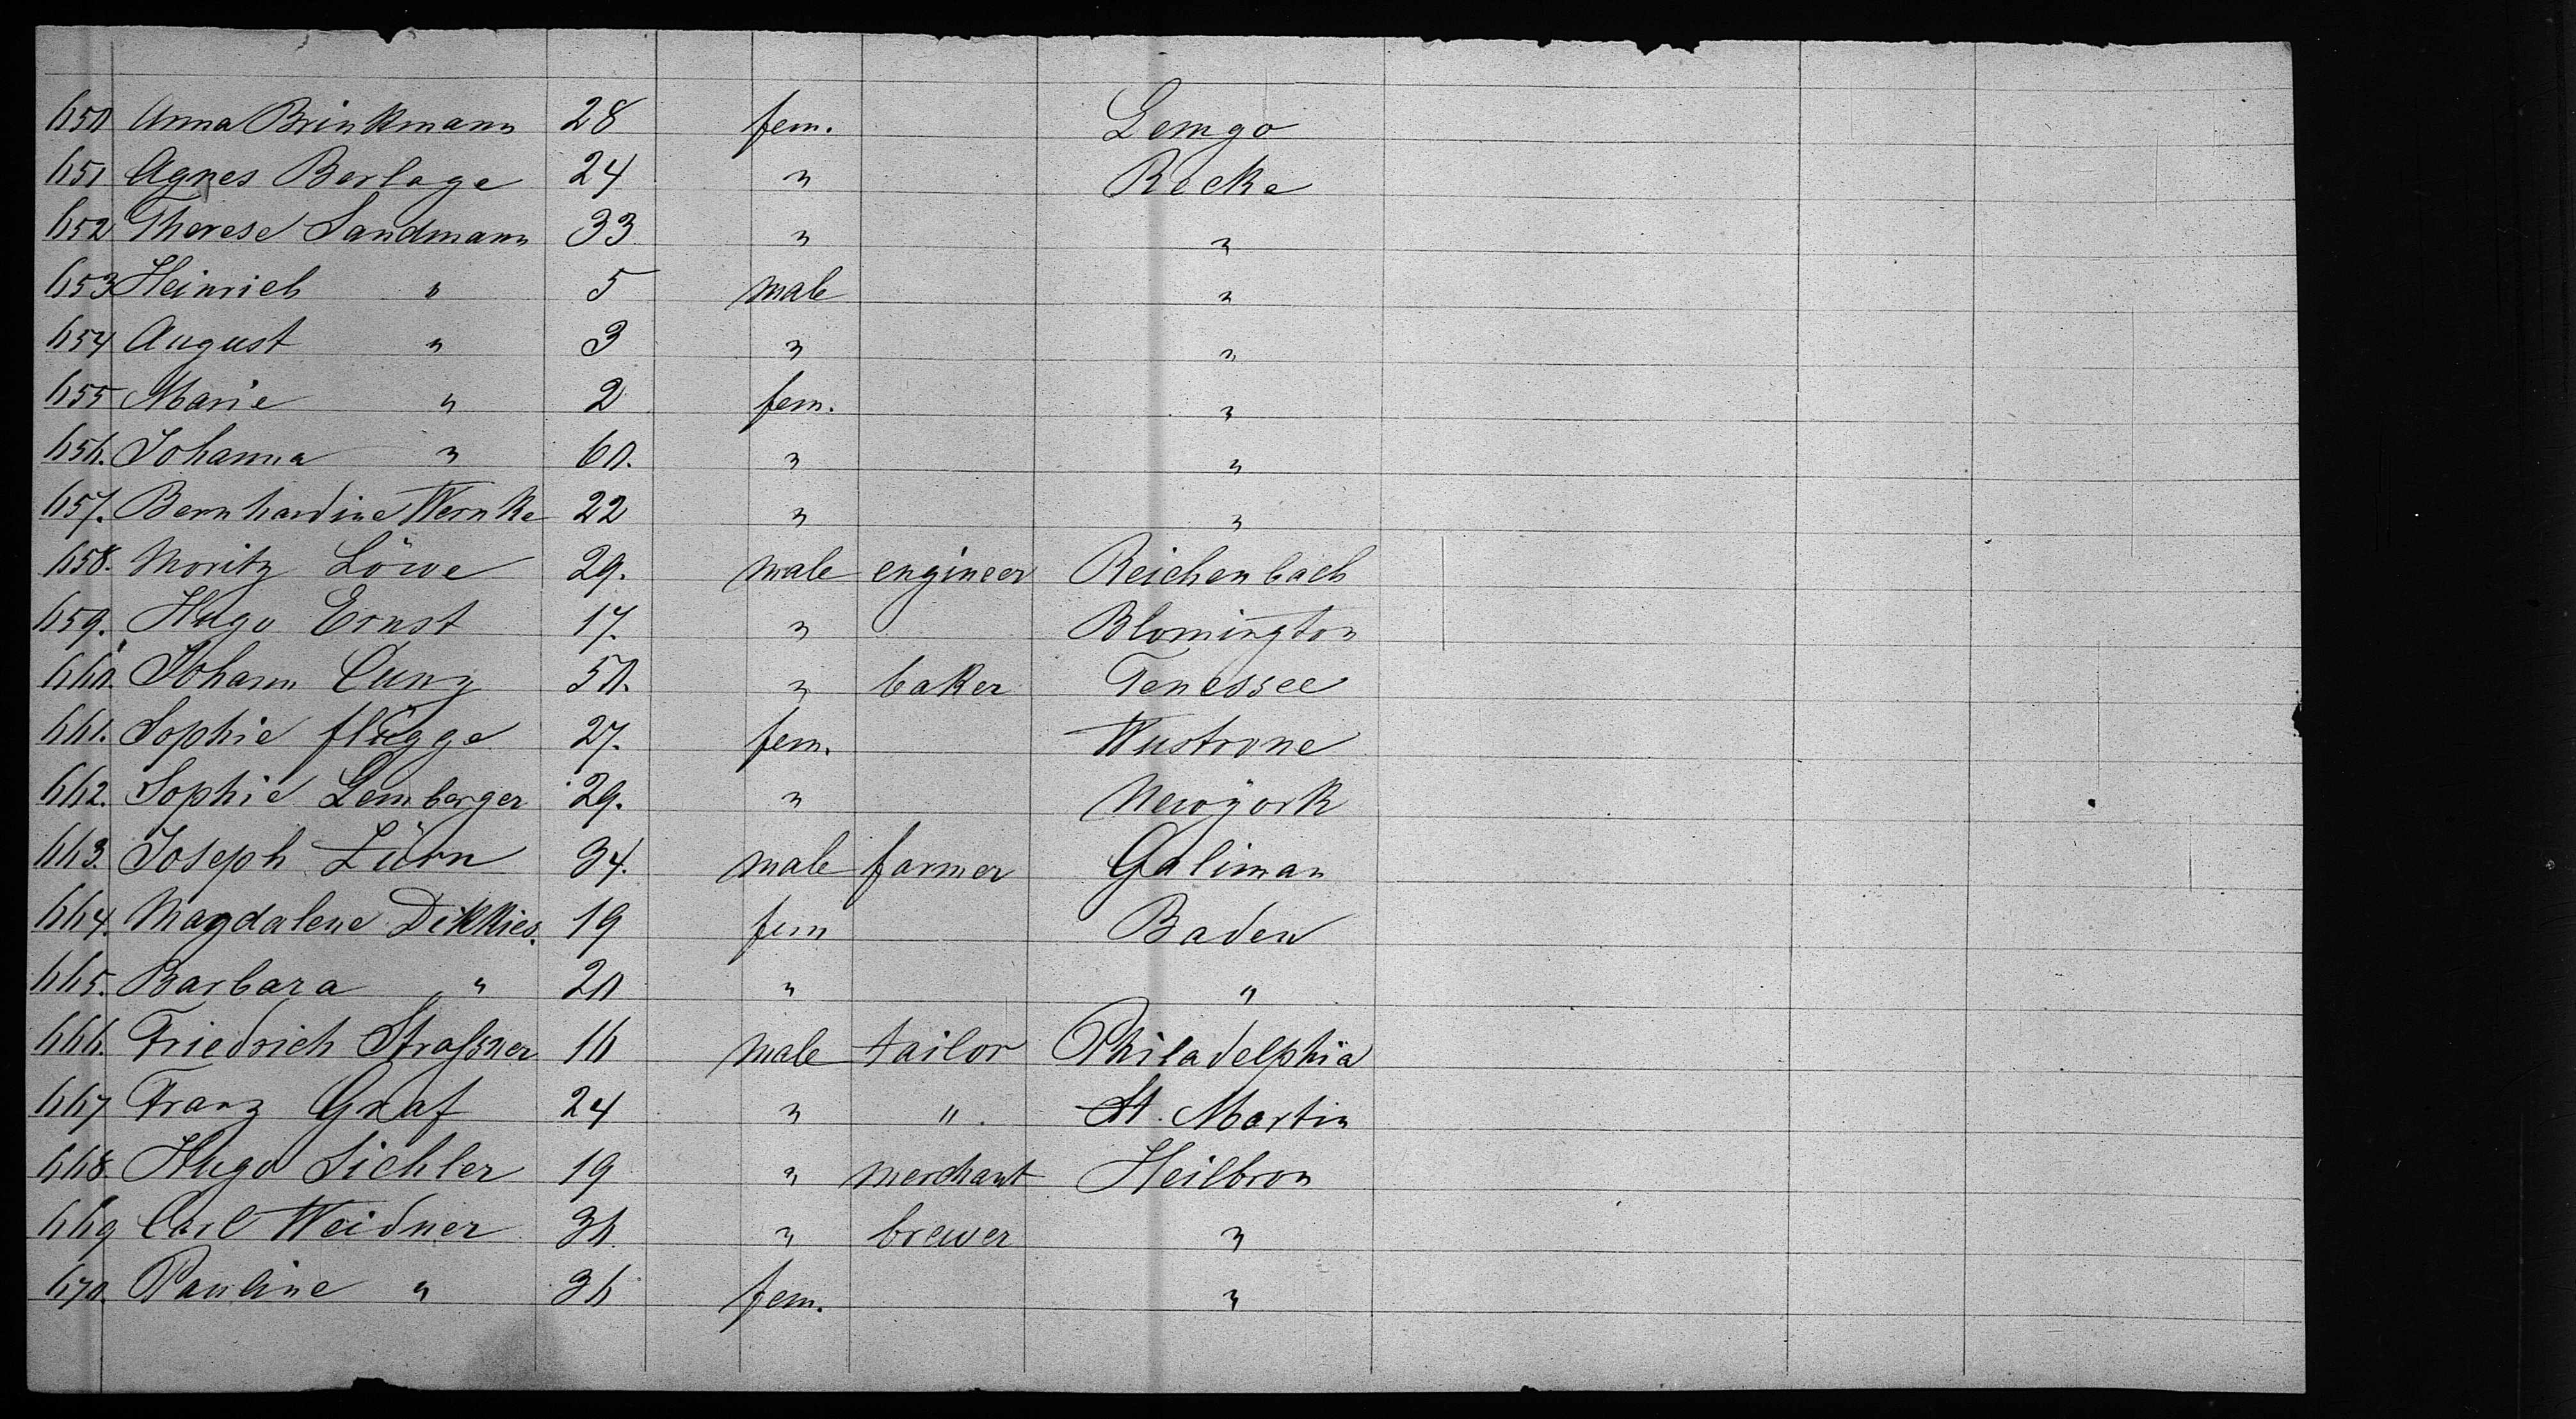 650 Anna Brinkmann 28 fem. Lemgo
651 Agnes Berlage 24 " Recke
652 Therese Sandmann 33 " "
653 Heinrich " 5 male "
654 August " 3 " "
655 Marie " 2 fem. "
656. Johanna " 60. " "
657. Bernhardine Wernke 22 " "
658. Moritz Löwe 29. male engineer Reichenbach
659. Hugo Ernst 17. " Blomington
660. Johann Cunz 50. " baker Tenessee
661. Sophie flügge 27. fem. Wustrone
662. Sophie Lemberger 29. " Newÿork
663. Joseph Lürn 34. male farmer Galiman
664. Magdalene Dikkies. 19 fem Baden
665. Barbara " 20 " "
666. Friedrich Straßner 16 male tailor Philadelphia
667 Franz Graf 24 " ". St. Martin
668. Hugo Sichler 19 " merchant Heilbron
669 Carl Weidner 36 " brewer "
670. Pauline " 36 fem. "